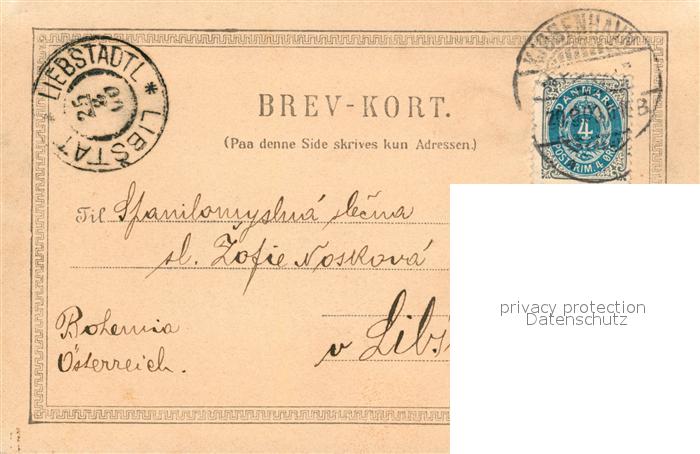 LIEBSTADTL * LIBŠTAT *
25
KJØBENHAVN
B.
DANMARK
4
POSTFRIM. 4 ØRE
BREV-KORT.
(Paa denne Side skrives kun Adressen.)
Til Spanilomyslná slečna
sl. Žofie Nosková
v Libš
Bohemia
Österreich.
privacy protection
Datenschutz